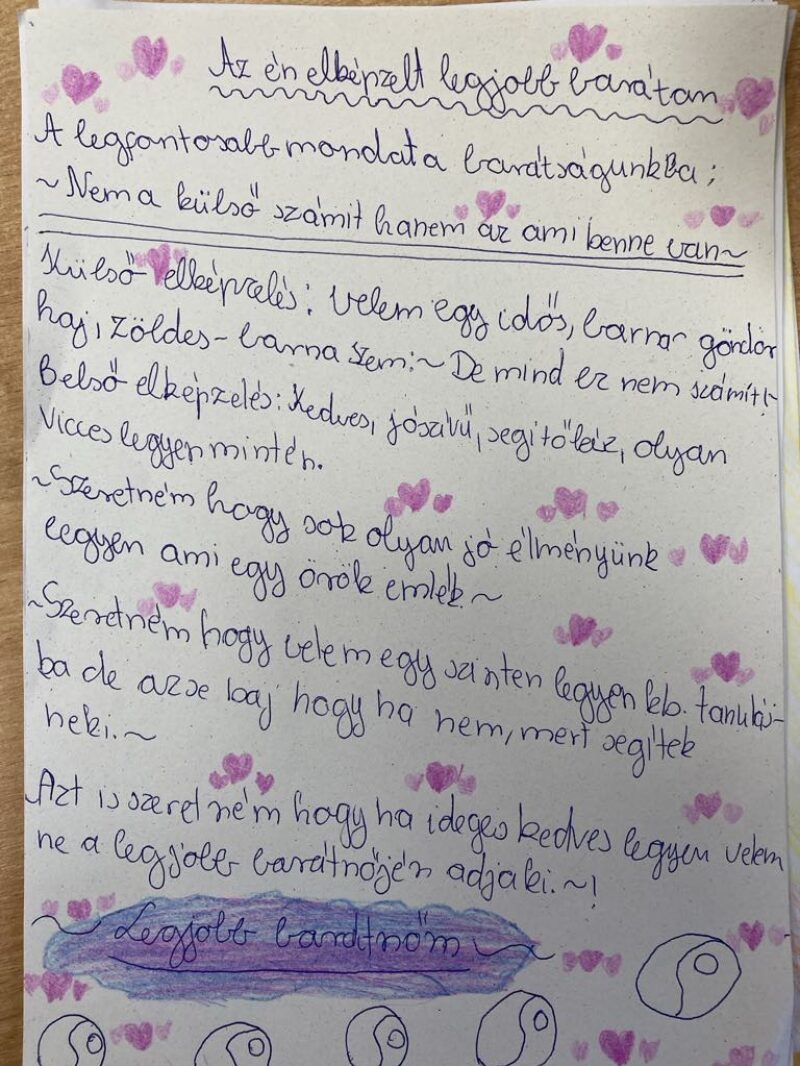 Az én elképzelt legjobb barátom
A legfontosabb mondat a barátságunkba;
~Nem a külső számit hanem az ami benne van~
Külső elképzelés: Velem egy idős, barna göndör
haj, zöldes-barna szem:~ De mind ez nem számit!~
Belső elképzelés: Kedves, jószivű, segitőkéz, olyan
vicces legyen mint én.
~Szeretném hogy sok olyan jó élményünk
legyen ami egy örök emlék.~
~Szeretném hogy velem egy szinten legyen kb. tanulás-
ba de az se baj hogy ha nem, mert segítek
neki.~
Azt is szeretném hogy ha ideges kedves legyen velem
ne a legjobb barátnőjén adja ki.~!
~Legjobb barátnőm~